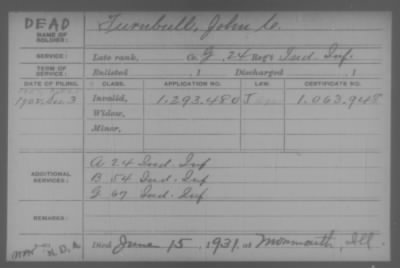 DEAD
Turnbull, John C.
NAME OF SOLDIER:
SERVICE: Late rank, Co. G, 24 Reg't Ind. Inf.
TERM OF SERVICE: Enlisted , 1 Discharged , 1
DATE OF FILING. CLASS. APPLICATION NO. LAW. CERTIFICATE NO.
Invalid, 1.293.480 1.063.948
Widow,
Minor,
ADDITIONAL SERVICES:
A 24 Ind. Inf
B 54 Ind. Inf
G 67 Ind. Inf
REMARKS:
Died June 15, 1931, at Monmouth, Ill.